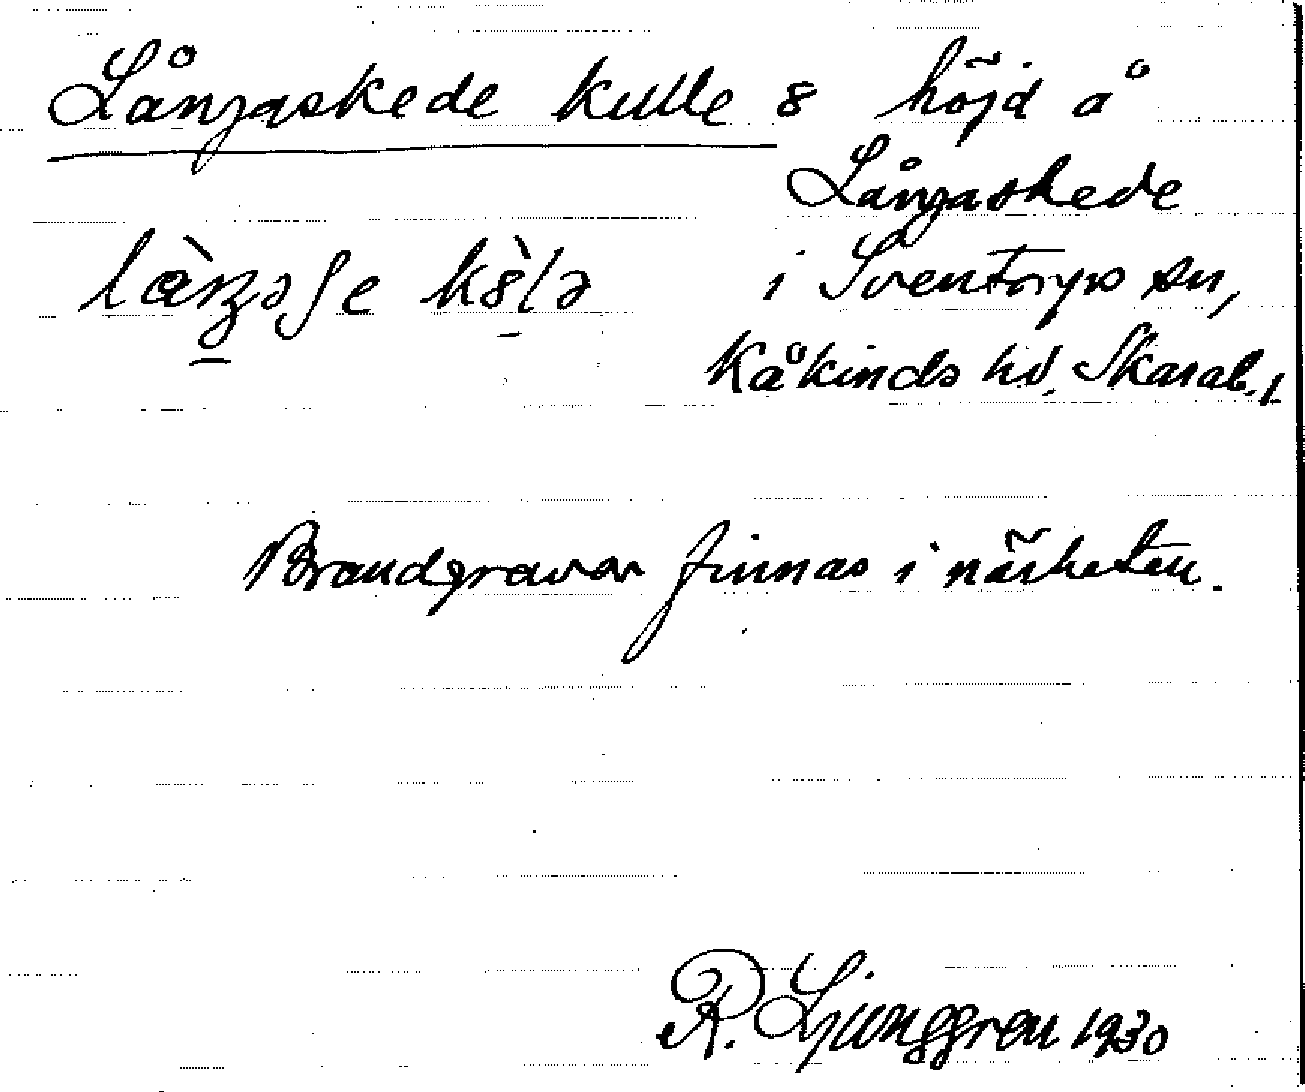 Långaskede kulle 8 höjd å
Långaskede
i Sventorps sn,
Kåkinds hd, Skarab. l.
Brandgravar finnas i närheten.
R. Ljunggren 1930